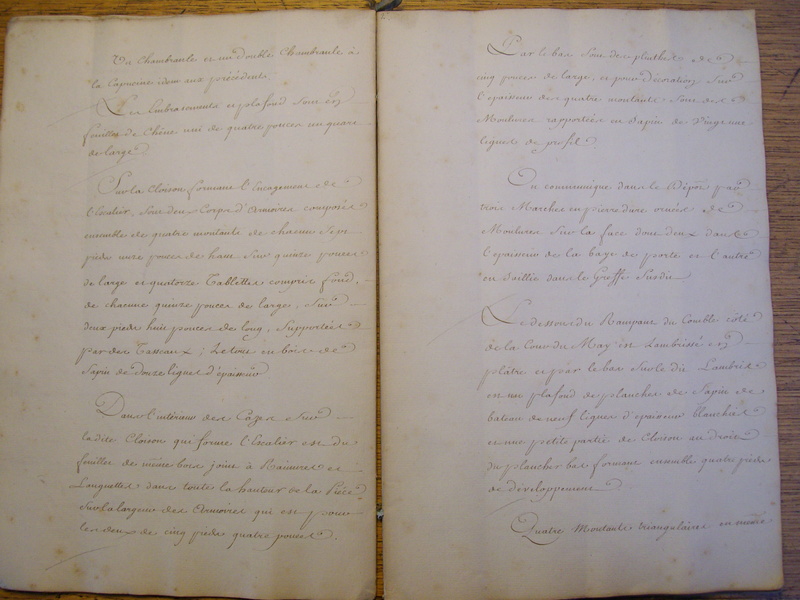 Un Chambranle et un double Chambranle à
la Capucine idem aux précédents
Les Embrasements et plafond sont en
feuillet de Chêne uni de quatre pouces un quart
de large
Sur la Cloison formant l'Encagement de
l'Escalier, sont deux Corps d'Armoires composés
ensemble de quatre montants de chacun Sept
pieds onze pouces de haut sur quinze pouces
de large et quatorze Tablettes compris fond,
de chacune quinze pouces de larges, sur
deux pieds huit pouces de long, Supportées
par des Tasseaux ; Le tout en bois de
Sapin de douze lignes d'épaisseur
Dans l'intérieur des Cazes sur
ladite Cloison qui forme l'Escalier est du
feuillet de même bois joint à Rainures et
Languettes dans toute la hauteur de la Pièce
sur la largeur des Armoires qui est pour
les deux de cinq pieds quatre pouces.
Par le bas sont des plinthes de
cinq pouces de large, et pour Décoration sur
l'épaisseur des quatre montants sont des
Moulures rapportées en Sapin de Vingt
lignes de profil.
On communique dans le Dépôt par
trois Marches en pierre dure ornées de
Moulures sur la face dont deux dans
l'épaisseur de la baye de porte et l'autre
en Saillie dans le Greffe Susdit
Le dessous du Rampant du Comble côté
de la Cour du May est Lambrissé en
plâtre et par le bas sur le dit Lambris
est un plafond de planches de Sapin de
bateau de neuf lignes d'épaisseur blanchies
et une petite partie de Cloison au droit
du plancher bas formant ensemble quatre pieds
de développement
Quatre Montants triangulaires en même